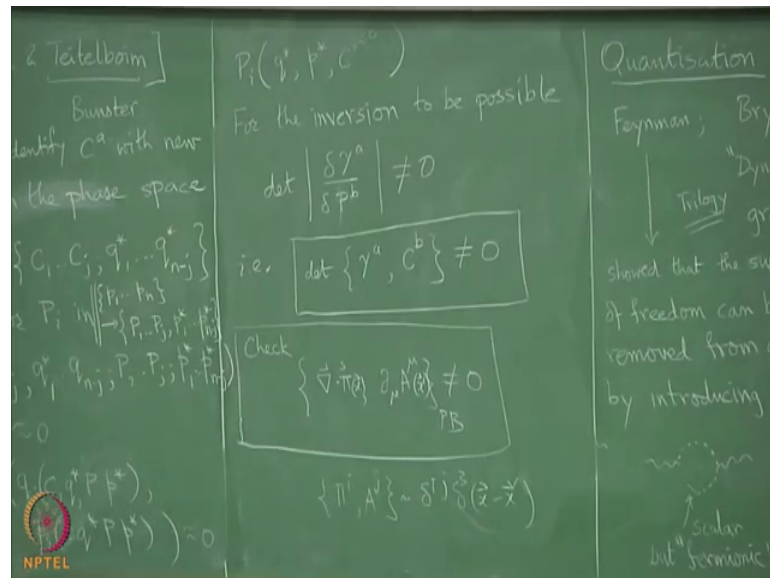 & Teitelboim ]
Bunster
identify Cᵃ with new
the phase space
{ C₁.. Cⱼ, q₁*... q*ₙ₋ⱼ }
Pᵢ in {p₁.. pₙ}
→{P₁..Pⱼ, p₁*.. p*ₙ₋ⱼ}
q₁*.. qₙ₋ⱼ ; P₁.. Pⱼ ; p₁*.. p*ₙ₋ⱼ)
≈0
q* P p*) ) ≈ 0
Pᵢ( q*, p*, C )
For the inversion to be possible
det | δγᵃ / δpᵇ | ≠ 0
i.e. det { γᵃ, Cᵇ } ≠ 0
Check
{ ∇⃗·π⃗(x⃗) ∂_μ A^μ(x⃗) }_PB ≠ 0
{ Πⁱ, Aʲ } ~ δⁱʲ δ³(x⃗ - x⃗')
Quantisation
Feynman; Bry
"Dyn
Trilogy gr
showed that the su
of freedom can b
removed from
by introducing
scalar
but "fermionic"
NPTEL